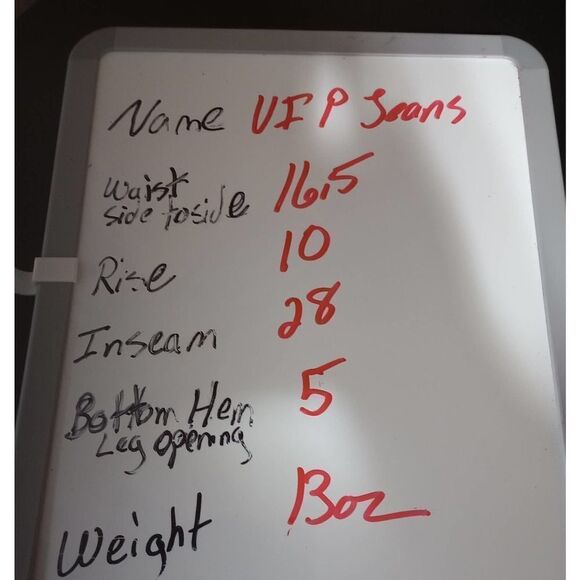 Name VIP Jeans
Waist
side to side 16.5
Rise 10
Inseam 28
Bottom Hem 5
Leg opening
Weight 13oz